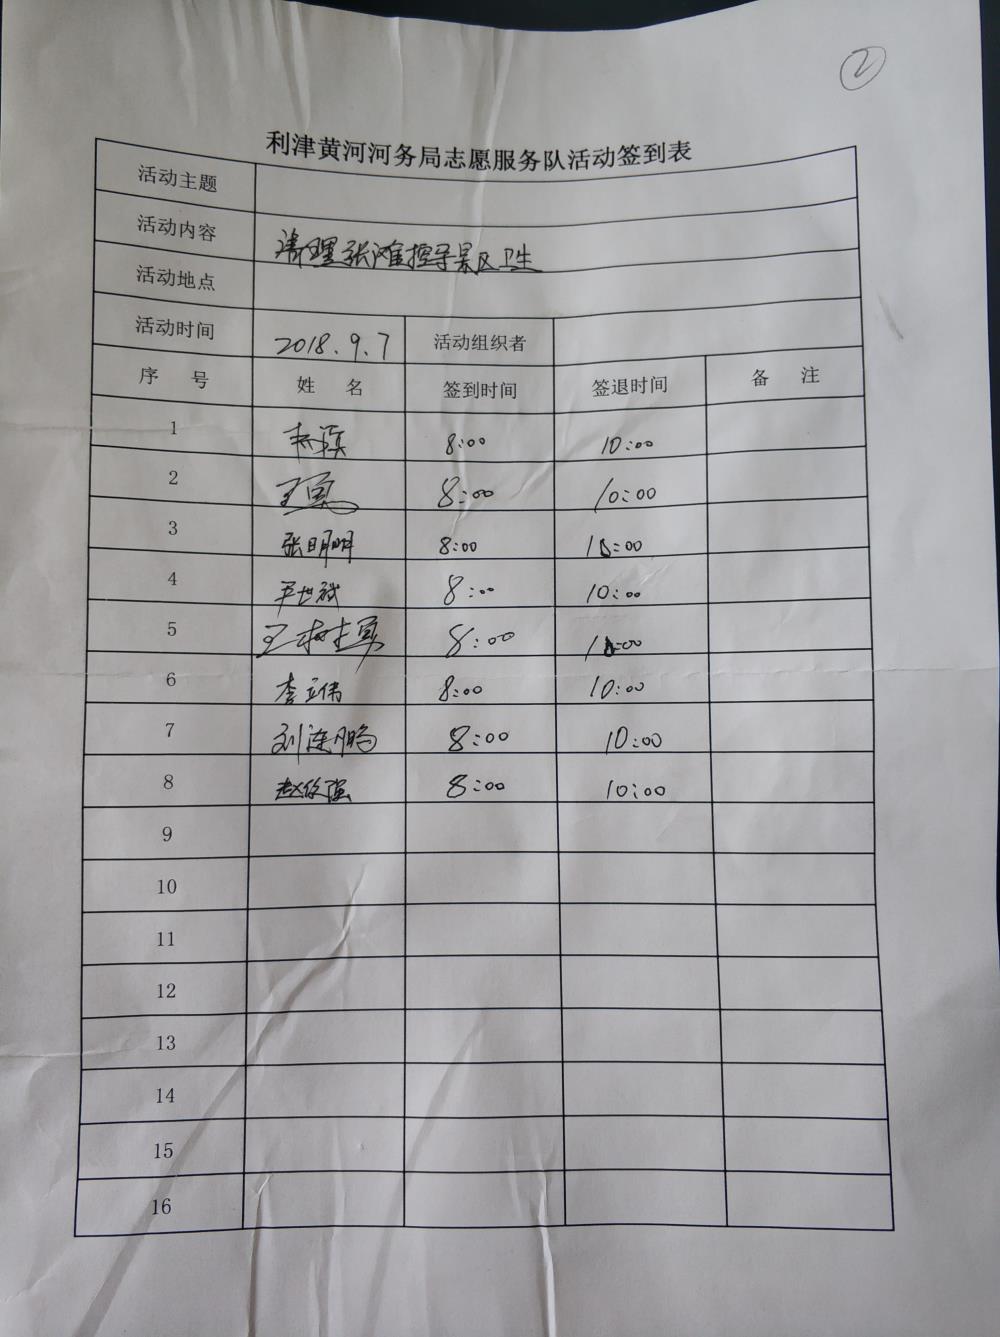 2
利津黄河河务局志愿服务队活动签到表
活动主题
活动内容 清理张滩控导景区卫生
活动地点
活动时间 2018.9.7 活动组织者
序 号 姓 名 签到时间 签退时间 备 注
1 8:00 10:00
2 王勇 8:00 10:00
3 张明明 8:00 10:00
4 8:00 10:00
5 王树勇 8:00 10:00
6 李立伟 8:00 10:00
7 刘连鹏 8:00 10:00
8 赵俊强 8:00 10:00
9
10
11
12
13
14
15
16